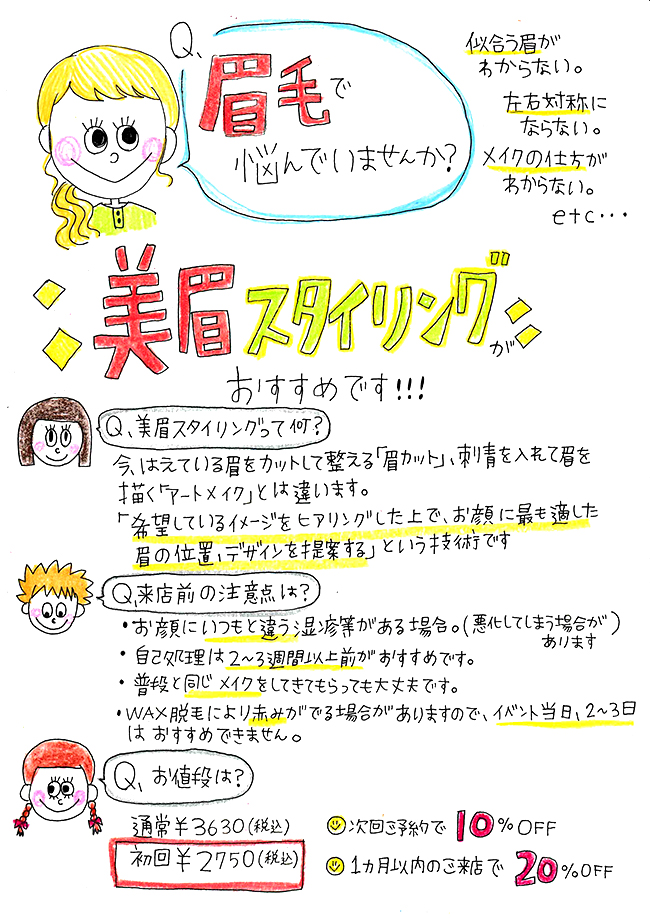 Q、
眉毛で
悩んでいませんか?
似合う眉が
わからない。
左右対称に
ならない。
メイクの仕方が
わからない。
etc・・・
美眉スタイリングが
おすすめです!!!
Q、美眉スタイリングって何?
今、はえている眉をカットして整える「眉カット」、刺青を入れて眉を
描く「アートメイク」とは違います。
「希望しているイメージをヒアリングした上で、お顔に最も適した
眉の位置、デザインを提案する」という技術です
Q、来店前の注意点は?
・お顔にいつもと違う湿疹等がある場合。(悪化してしまう場合が
あります)
・自己処理は2〜3週間以上前がおすすめです。
・普段と同じメイクをしてきてもらっても大丈夫です。
・WAX脱毛により赤みがでる場合がありますので、イベント当日、2〜3日
はおすすめできません。
Q、お値段は?
通常¥3630(税込)
初回¥2750(税込)
次回ご予約で10%OFF
1カ月以内のご来店で20%OFF